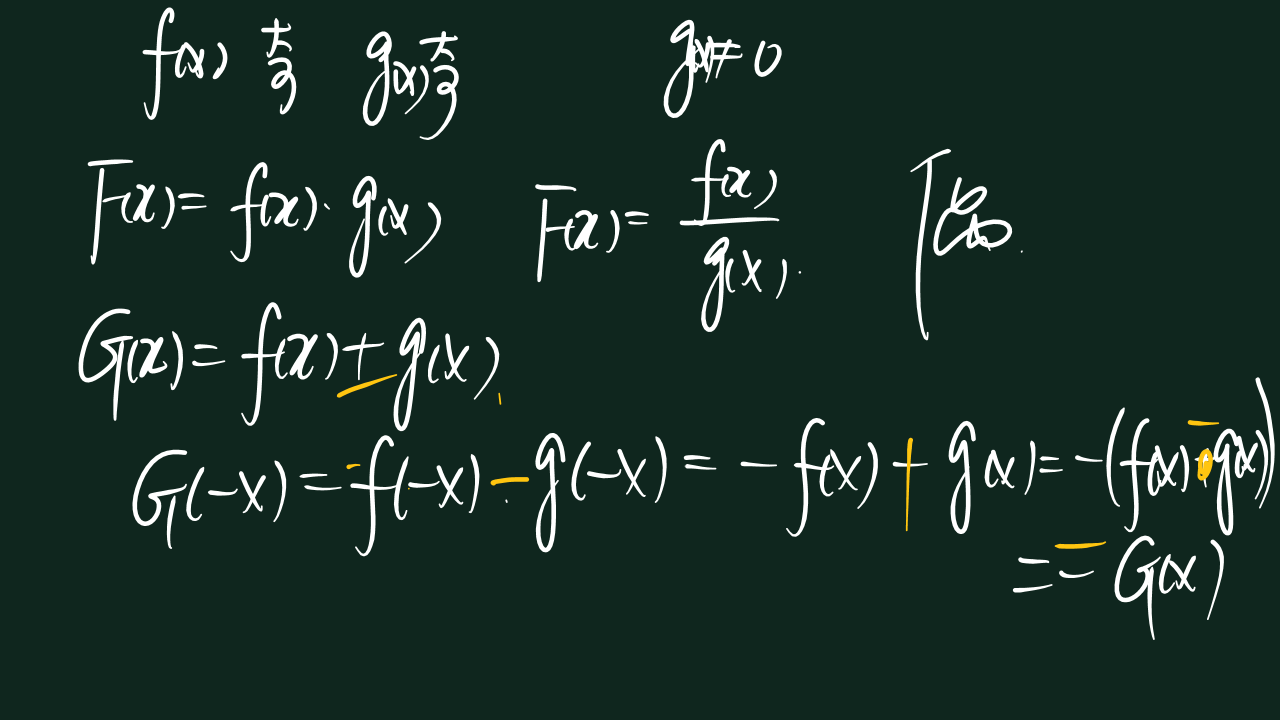 f(x) 奇 g(x) 奇 g(x) ≠ 0
F(x) = f(x) · g(x) F(x) = f(x) / g(x) 偶
G(x) = f(x) + g(x)
G(-x) = f(-x) - g(-x) = - f(x) + g(x) = -(f(x) - g(x))
= - G(x)